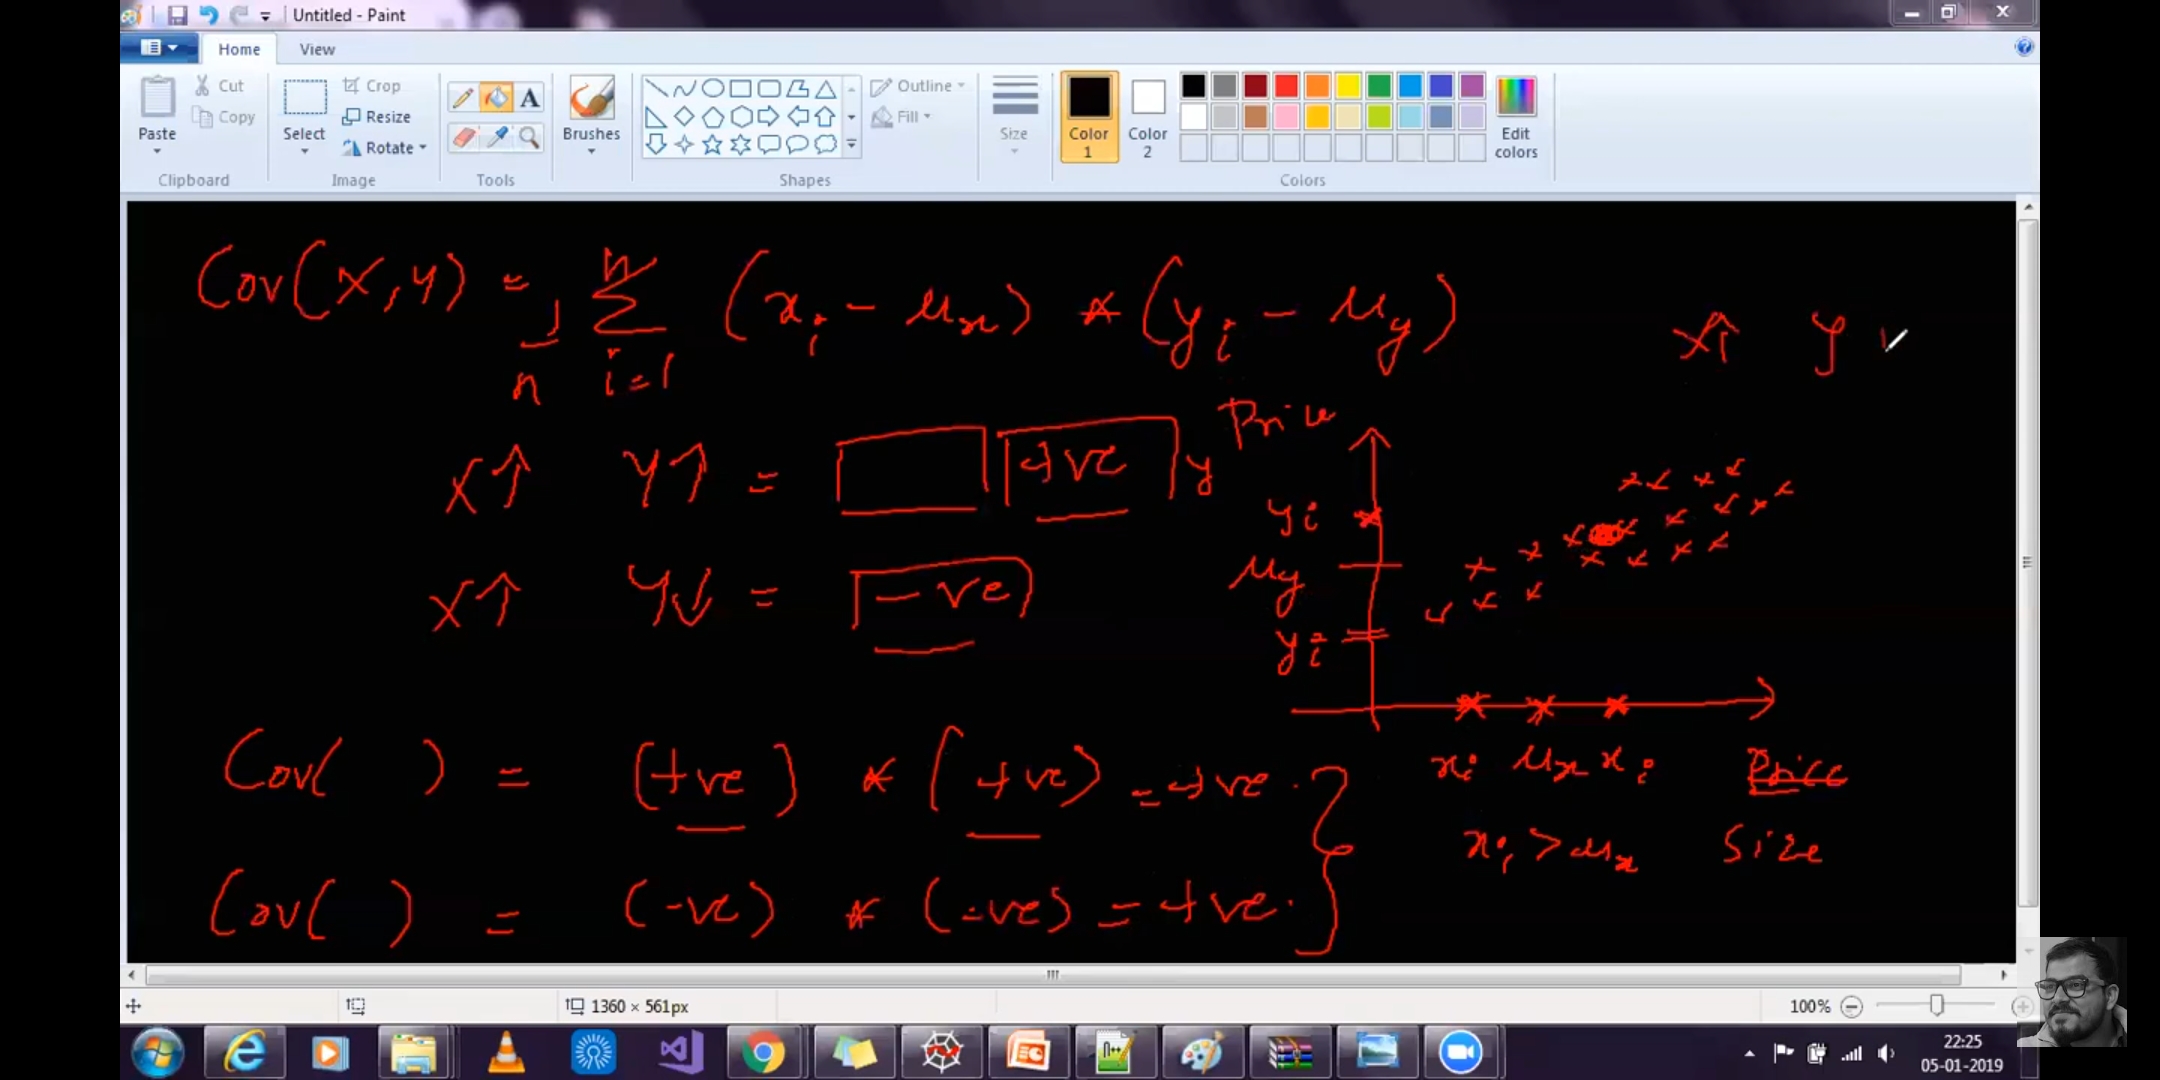 Untitled - Paint
Home View
Paste
Cut
Copy
Clipboard
Select
Crop
Resize
Rotate
Image
Tools
Brushes
Shapes
Outline
Fill
Size
Color 1
Color 2
Edit colors
Colors
Cov(X,Y) = 1/n n Σ i=1 (xi - μx) * (yi - μy)
X↑ Y
X↑ Y↑ = +ve
X↑ Y↓ = -ve
y Price
yi
μy
yi
xi μx xi Price
xi > μx Size
Cov( ) = (+ve) * (+ve) = +ve.
Cov( ) = (-ve) * (-ve) = +ve.
1360 × 561px
100%
22:25
05-01-2019